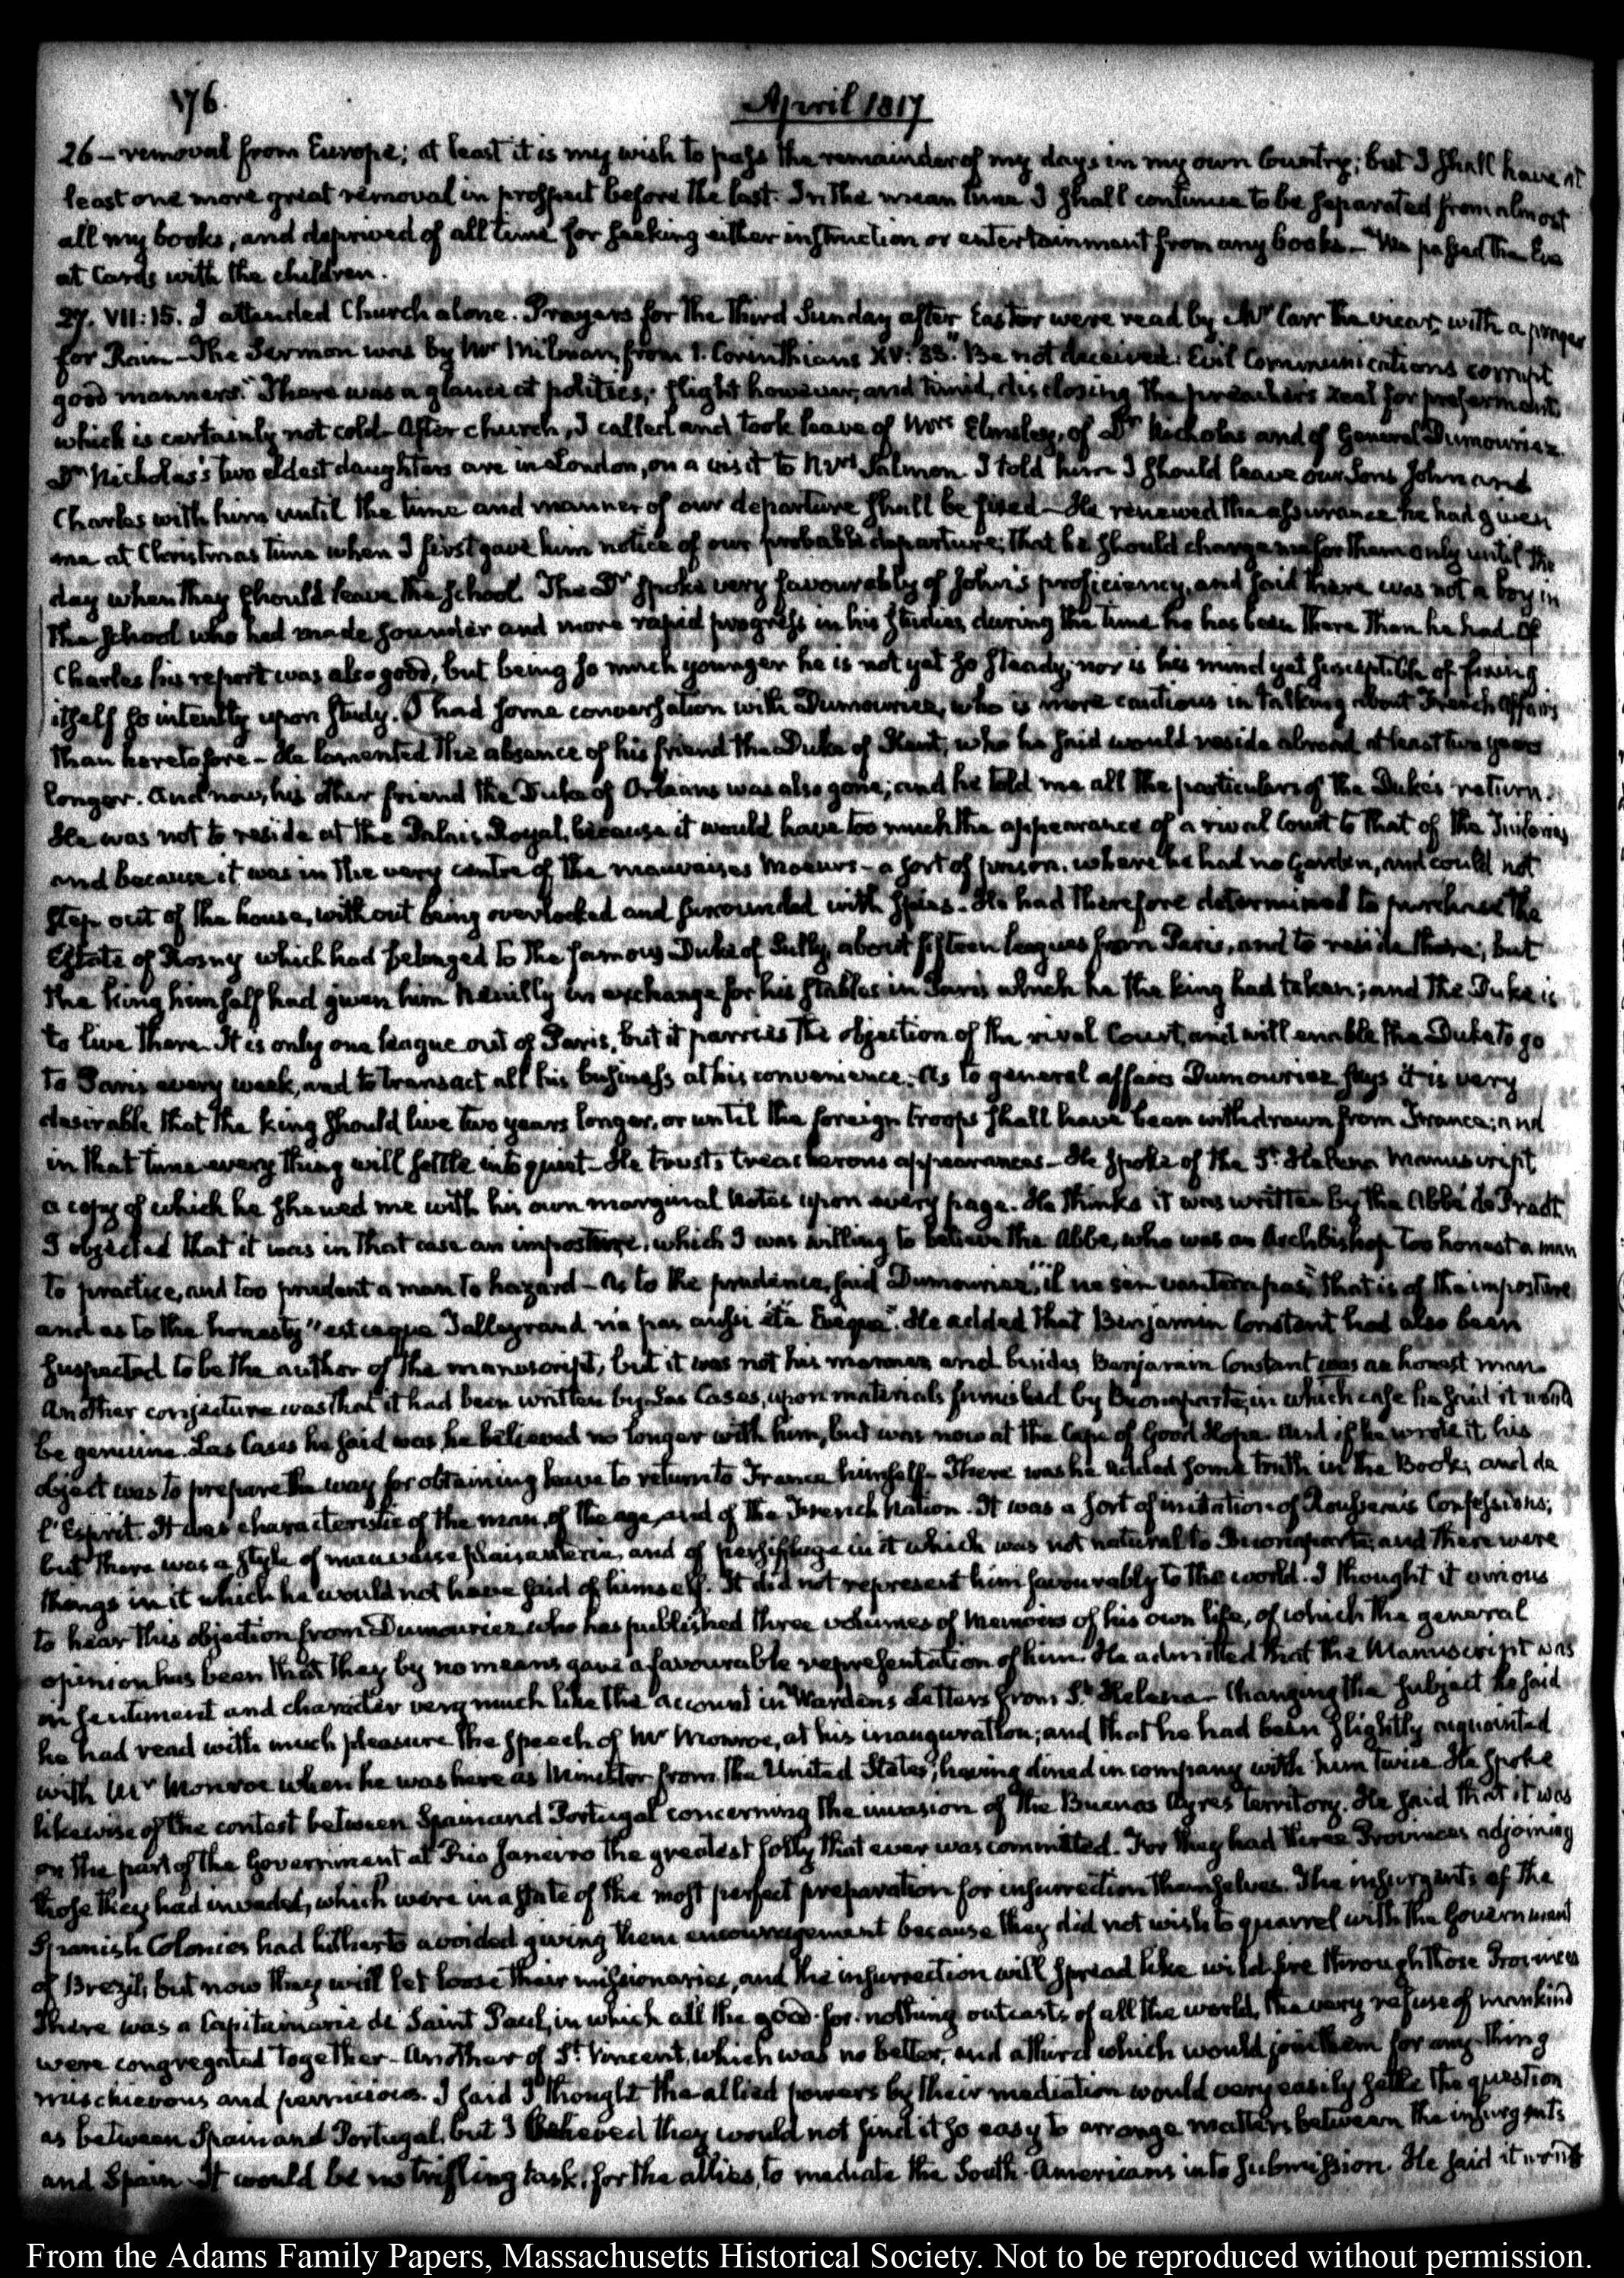 176.
April 1817
26 - removal from Europe; at least it is my wish to pass the remainder of my days in my own Country; but I shall have at
least one more great removal in prospect before the last. In the mean time I shall continue to be separated from almost
all my books, and deprived of all time for seeking either instruction or entertainment from any books. We passed the Eve
at Cards with the children.
27. VII:15. I attended Church alone. Prayers for the third Sunday after Easter were read by Mr Carr the vicar, with a prayer
for Rain - The Sermon was by Mr Milman, from 1. Corinthians XV: 33. "Be not deceived: Evil Communications corrupt
good manners." There was a glance at politics; slight however, and timid, disclosing the preacher's zeal for preferment,
which is certainly not cold. After church, I called and took leave of Mrs Elmsley, of Dr Nicholas and of General Dumouriez.
Dr Nicholas's two eldest daughters are in London, on a visit to Mrs Salmon. I told him I should leave our Sons John and
Charles with him until the time and manner of our departure shall be fixed - He renewed the assurance he had given
me at Christmas time when I first gave him notice of our probable departure; that he should charge me for them only until the
day when they should leave the School. The Dr spoke very favourably of John's proficiency, and said there was not a boy in
the School who had made sounder and more rapid progress in his studies, during the time he has been there than he had. Of
Charles his report was also good, but being so much younger he is not yet so steady; nor is his mind yet susceptible of fixing
itself so intently upon study. I had some conversation with Dumouriez, who is more cautious in talking about French Affairs
than heretofore - He lamented the absence of his friend the Duke of Kent, who he said would reside abroad at least two years
longer. And now, his other friend the Duke of Orleans was also gone; and he told me all the particulars of the Duke's return.
He was not to reside at the Palais Royal, because it would have too much the appearance of a rival Court to that of the Tuileries
and because it was in the very centre of the mauvaises Moeurs - a sort of prison, where he had no Garden, and could not
step out of the house, without being overlooked and surrounded with spies. He had therefore determined to purchase the
Estate of Rosny which had belonged to the famous Duke of Sully, about fifteen leagues from Paris, and to reside there; but
the king himself had given him Neuilly in exchange for his stables in Paris which he the king had taken; and the Duke is
to live there. It is only one league out of Paris, but it parries the objection of the rival Court, and will enable the Duke to go
to Paris every week, and to transact all his business at his convenience. As to general affairs Dumouriez says it is very
desirable that the king should live two years longer, or until the foreign troops shall have been withdrawn from France; and
in that time every thing will settle into quiet - He trusts treacherous appearances - He spoke of the St. Helena Manuscript
a copy of which he shewed me with his own marginal Notes upon every page. He thinks it was written by the Abbé de Pradt
I objected that it was in that case an imposture, which I was willing to believe the Abbé, who was an Archbishop too honest a man
to practice, and too prudent a man to hazard - As to the prudence, said Dumouriez, "il ne s'en vantera pas," that is of the imposture
and as to the honesty "est ce que Talleyrand n'a pas aussi été Evêque". He added that Benjamin Constant had also been
suspected to be the author of the manuscript, but it was not his manner, and besides Benjamin Constant was an honest man.
Another conjecture was that it had been written by Las Cases, upon materials furnished by Buonaparte, in which case he said it would
be genuine. Las Cases he said was he believed no longer with him, but was now at the Cape of Good Hope. And if he wrote it, his
object was to prepare the way for obtaining leave to return to France himself. There was he added some truth in the Book; and de
l'Esprit. It was characteristic of the man, of the age, and of the French Nation. It was a sort of imitation of Rousseau's Confessions;
but there was a style of mauvaise plaisanterie, and of persiflage in it which was not natural to Buonaparte; and there were
things in it which he would not have said of himself. It did not represent him favourably to the world. I thought it curious
to hear this objection from Dumouriez who has published three volumes of Memoirs of his own life, of which the general
opinion has been that they by no means gave a favourable representation of him. He admitted that the Manuscript was
in sentiment and character very much like the account in Wardens Letters from St. Helena - Changing the subject he said
he had read with much pleasure the speech of Mr Monroe, at his inauguration; and that he had been slightly acquainted
with Mr Monroe when he was here as Minister from the United States; having dined in company with him twice. He spoke
likewise of the contest between Spain and Portugal concerning the invasion of the Buenos Ayres territory. He said that it was
on the part of the Government at Rio Janeiro the greatest folly that ever was committed. For they had three Provinces adjoining
those they had invaded, which were in a state of the most perfect preparation for insurrection themselves. The insurgents of the
Spanish Colonies had hitherto avoided giving them encouragement because they did not wish to quarrel with the Government
of Brezil; but now they will let loose their missionaries, and the insurrection will spread like wild fire through those Provinces
There was a Capitainerie de Saint Paul, in which all the good-for-nothing outcasts of all the world, the very refuse of mankind
were congregated together - Another of St. Vincent, which was no better, and a third which would join them for any thing
mischievous and pernicious. I said I thought the allied powers by their mediation would very easily settle the question
as between Spain and Portugal, but I believed they would not find it so easy to arrange matters between the insurgents
and Spain. It would be no trifling task, for the allies, to mediate the South-Americans into submission. He said it would
From the Adams Family Papers, Massachusetts Historical Society. Not to be reproduced without permission.